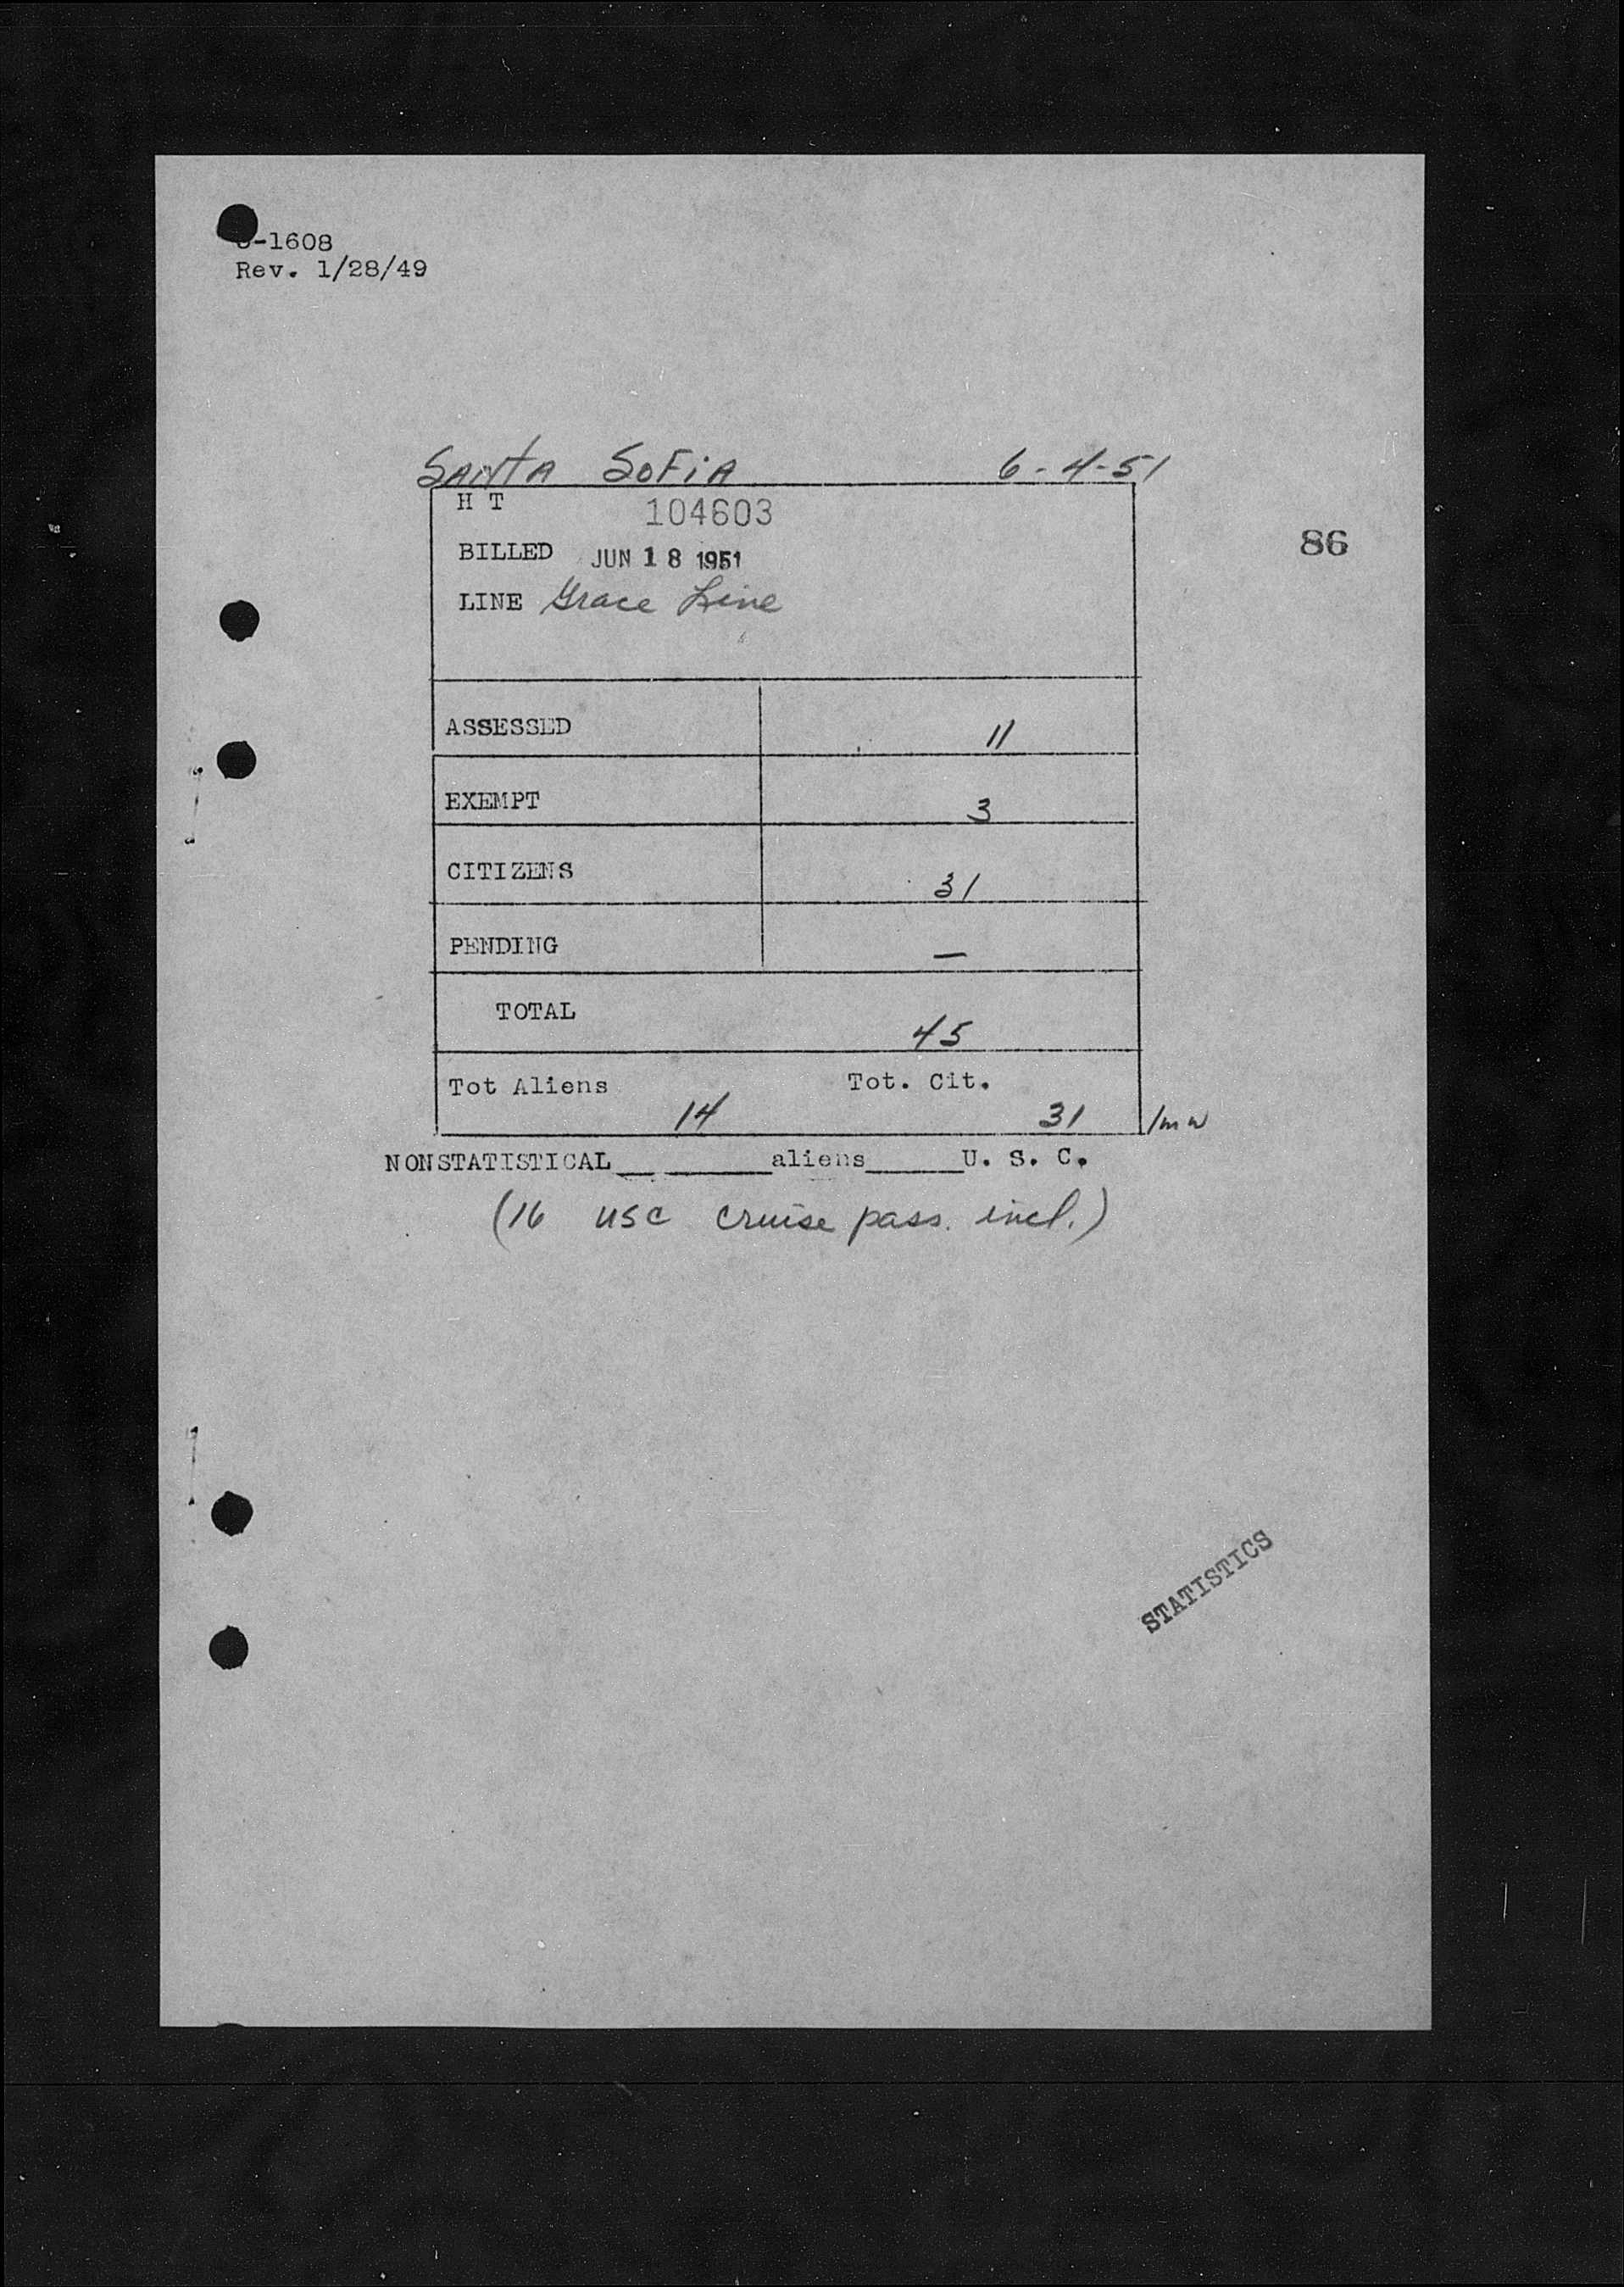 -1608
Rev. 1/28/49
SANTA SOFIA 6-4-51
H T 104603
86
BILLED JUN 18 1951
LINE Grace Line
ASSESSED 11
EXEMPT 3
CITIZENS 31
PENDING —
TOTAL 45
Tot Aliens 14 Tot. Cit. 31 /mw
NONSTATISTICAL__ ______aliens_____U. S. C.
(16 USC cruise pass. incl.)
STATISTICS